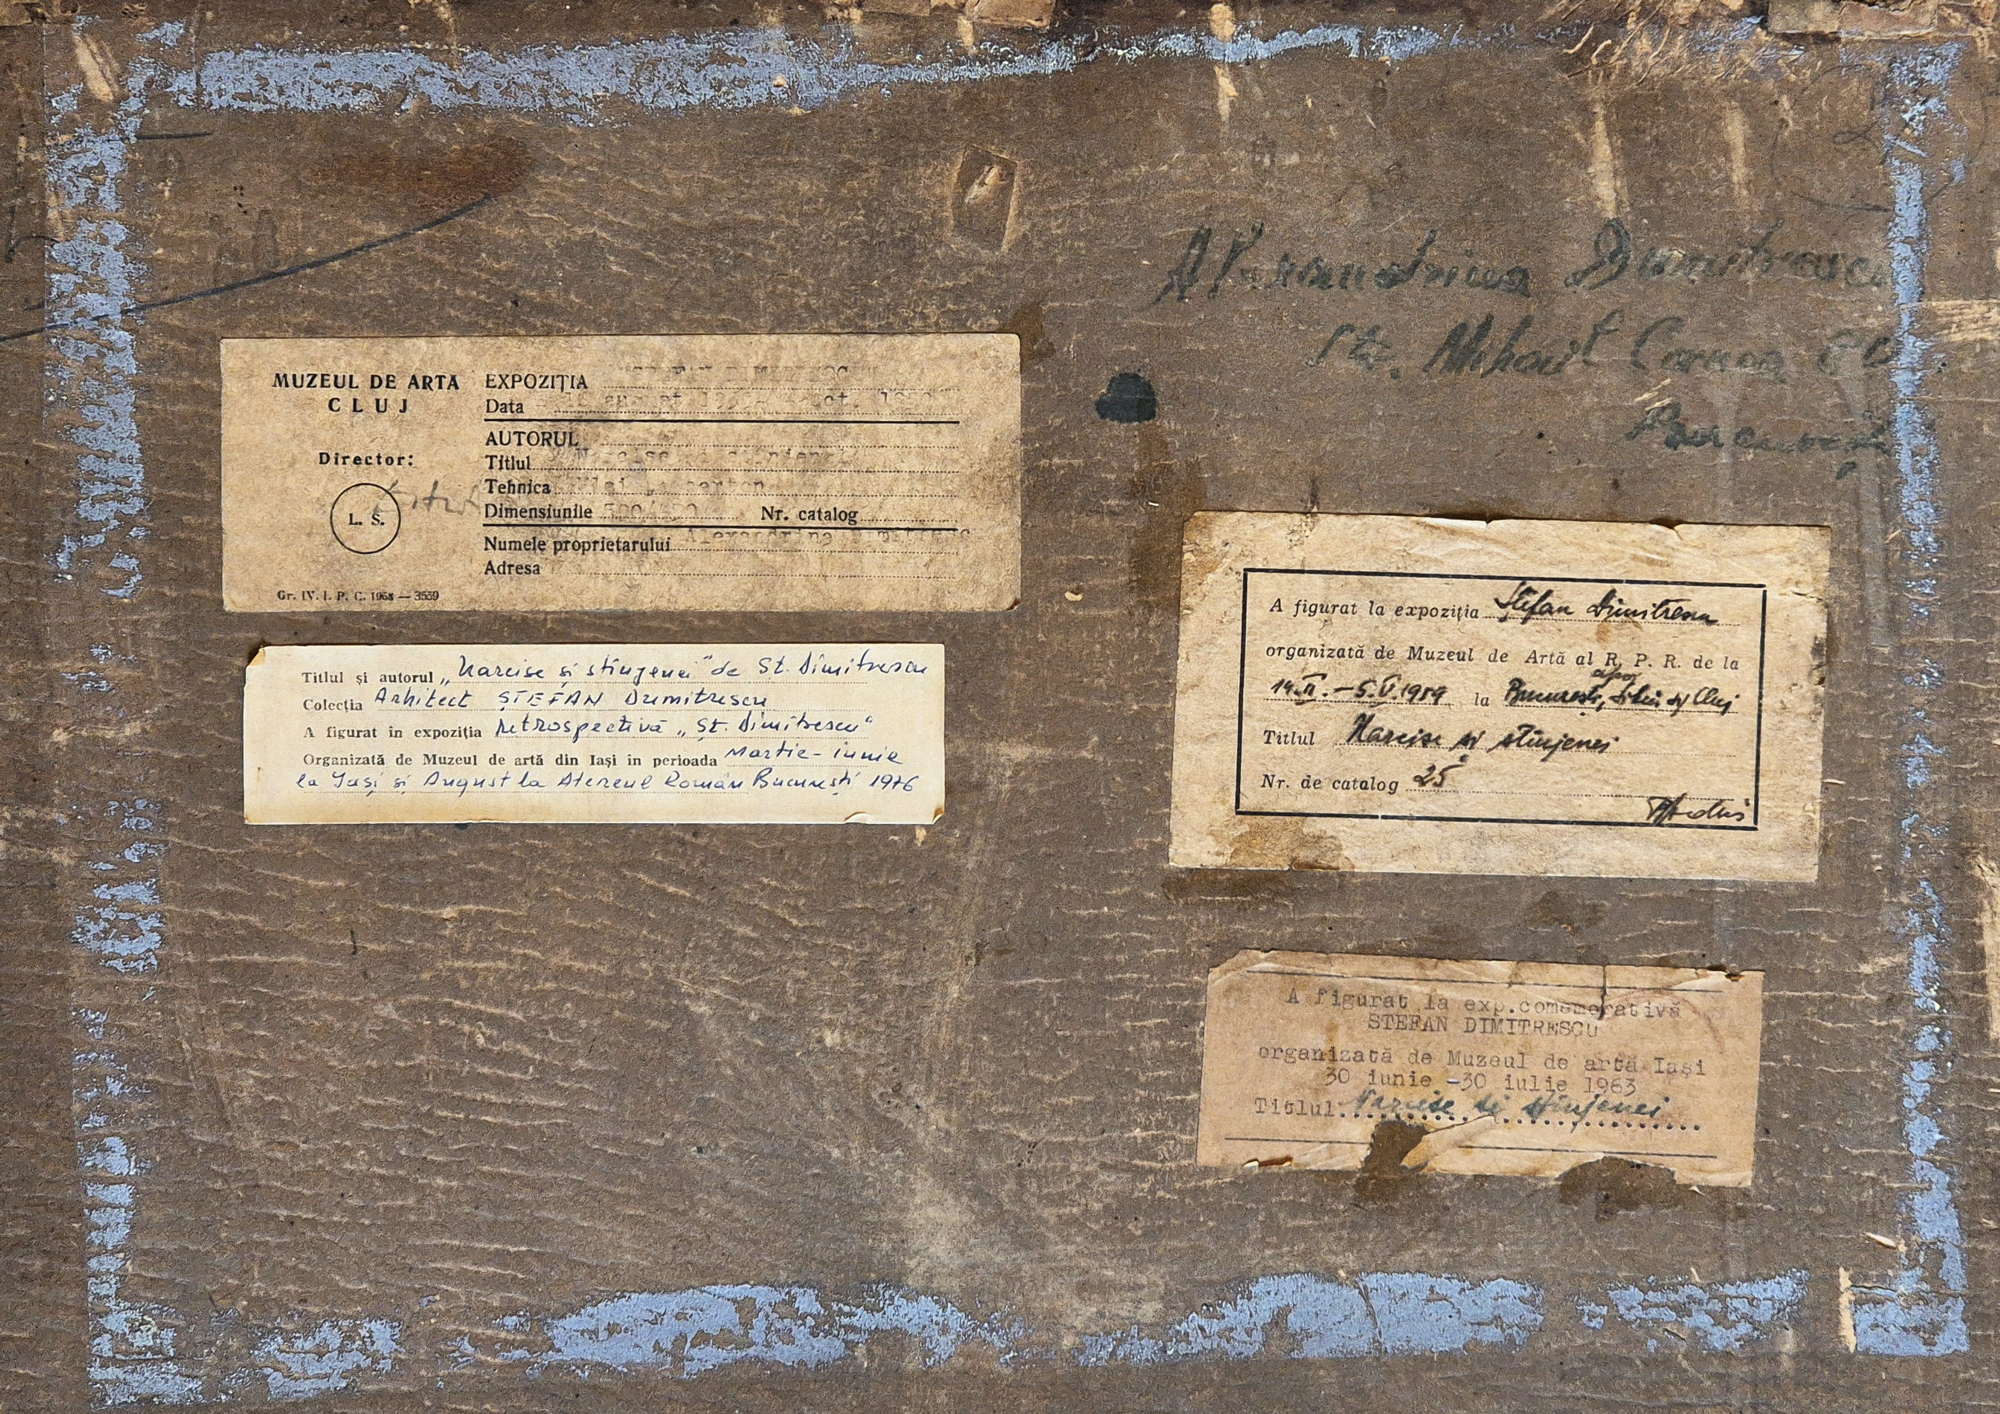 Alexandrina Dumitrescu
Str. Mihail Cornea
București
MUZEUL DE ARTĂ
CLUJ
Director:
L. S.
Gr. IV. I. P. C. 1958 — 3559
EXPOZIȚIA ȘTEFAN DIMITRESCU
Data august
AUTORUL
Titlul Narcise și stînjenei
Tehnica Ulei carton
Dimensiunile Nr. catalog
Numele proprietarului Alexandrina
Adresa
Titlul și autorul „Narcise și stînjenei" de Șt. Dimitrescu
Colecția Arhitect ȘTEFAN Dumitrescu
A figurat în expoziția retrospectivă „Șt. Dimitrescu"
Organizată de Muzeul de artă din Iași în perioada Martie - iunie
la Iași și August la Ateneul Român București 1976
A figurat la expoziția Ștefan Dimitrescu
organizată de Muzeul de Artă al R. P. R. de la
apoi
la București, Sibiu și Cluj
Titlul Narcise și stînjenei
Nr. de catalog 25
A figurat la exp.comemorativă
STEFAN DIMITRESCU
organizată de Muzeul de artă Iași
30 iunie -30 iulie 1963
Titlul. Narcise și stînjenei